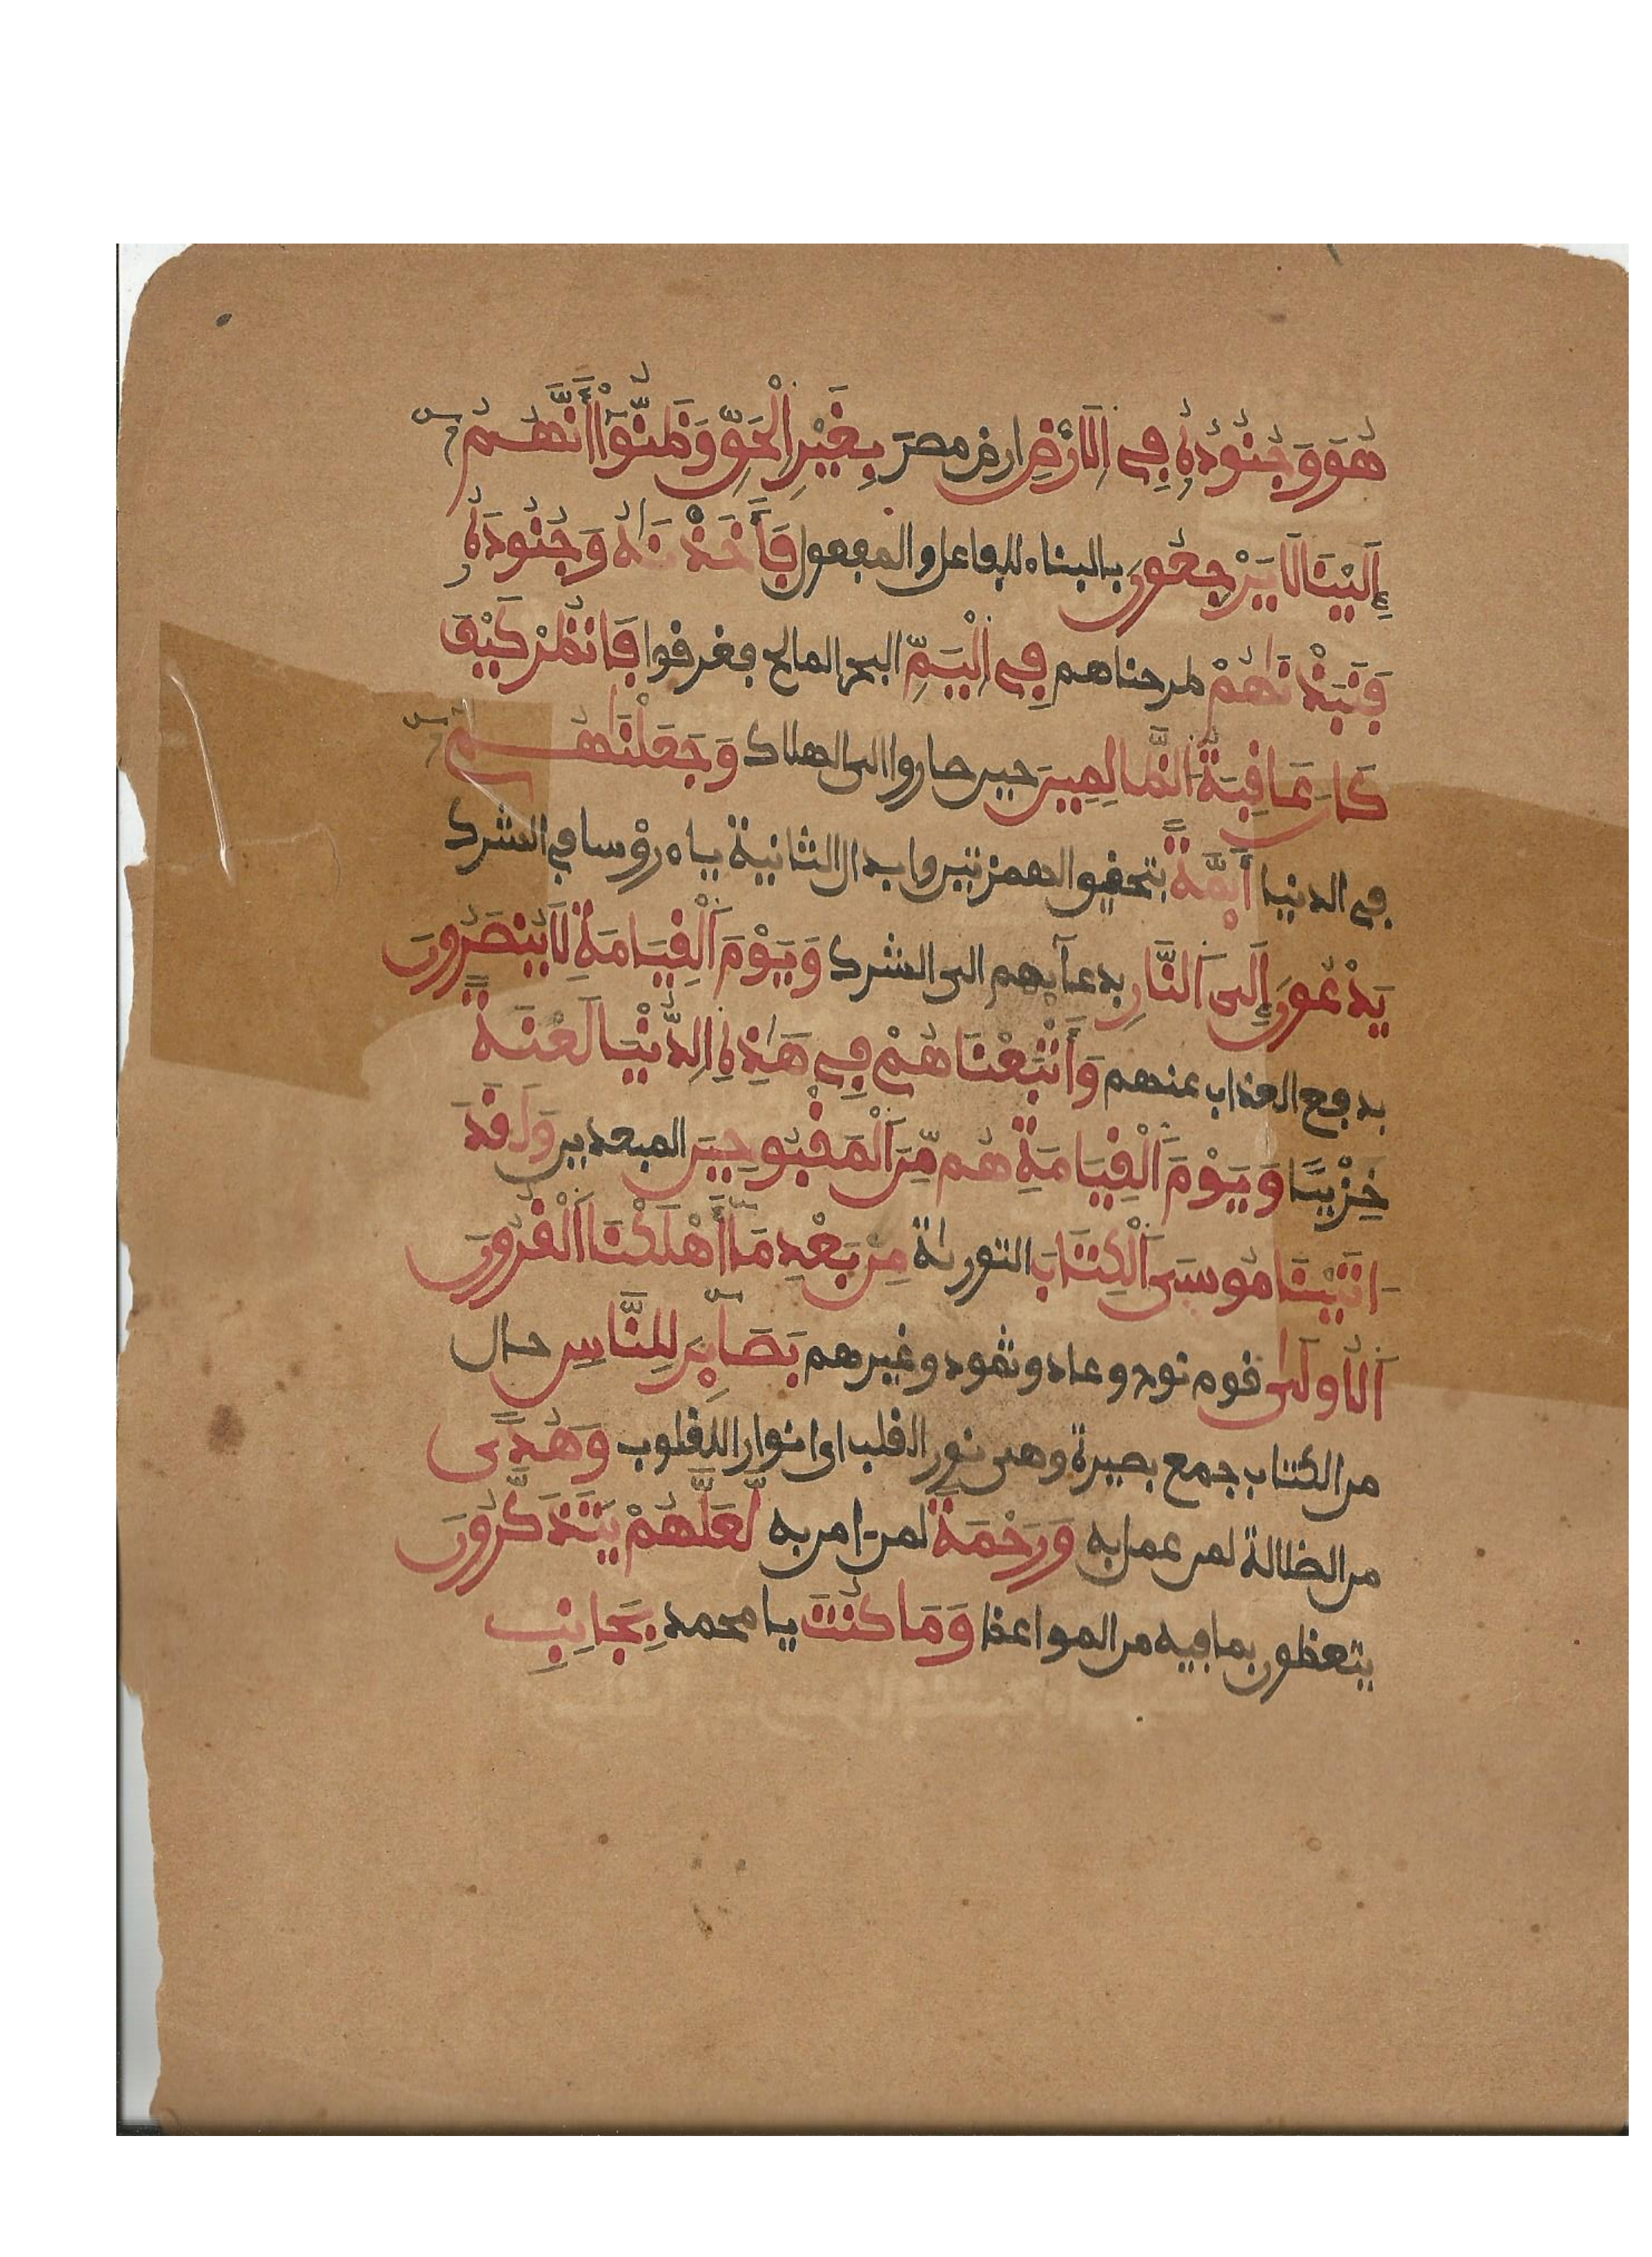 هُوَ وَجُنُودُهُ فِي اِلَارْضِ ارض مصرَ بِغَيْرِ اِلْحَقِّ وَظَنُّوٓاْ أَنَّهُمُۥٓ
إِلَيْنَا لَا يَرْجِعُونَ بالبناء للفاعل والمفعول فَأَخَذْنَٰهُ وَجُنُودَهُۥ
فَنَبَذْنَٰهُمْ طرحناهم فِي اِلْيَمِّ البحر المالح فغرقوا فَانظُرْ كَيْفَ
كَانَ عَاقِبَةُ اَلظَّالِمِينَ حين صاروا الى الهلاك وَجَعَلْنَٰهُمُۥٓ
في الدنيا أَئِمَّةً بتحقيق الهمزتين وابدال الثانية ياء رؤسا في الشرك
يَدْعُونَ إِلَى اَلنَّارِ بدعآيهم الى الشرك وَيَوْمَ اَلْقِيَامَةِ لَا يُنصَرُونَ
بدفع العذاب عنهم وَأَتْبَعْنَاهُمْ فِي هَٰذِهِ اِلدُّنْيَا لَعْنَةً
خِزْيًا وَيَوْمَ اَلْقِيَامَةِ هُم مِّنَ اَلْمَقْبُوحِينَ المبعدين وَلَقَدَ
اتَيْنَا مُوسَى اَلْكِتَٰبَ التورىٰة مِنۢ بَعْدِ مَآ أَهْلَكْنَا اَلْقُرُونَ
اَلُاولَىٰ قوم نوح وعاد وثمود وغيرهم بَصَآئِرَ لِلنَّاسِ حال
من الكتاب جمع بصيرة وهى نور القلب اى انوارا للقلوب وَهُدًى
من الضلالة لمن عمل به وَرَحْمَةً لمن امن به لَّعَلَّهُمْ يَتَذَكَّرُونَ
يتعظون بما فيه من المواعظ وَمَا كُنتَ يا محمد بِجَانِبِ